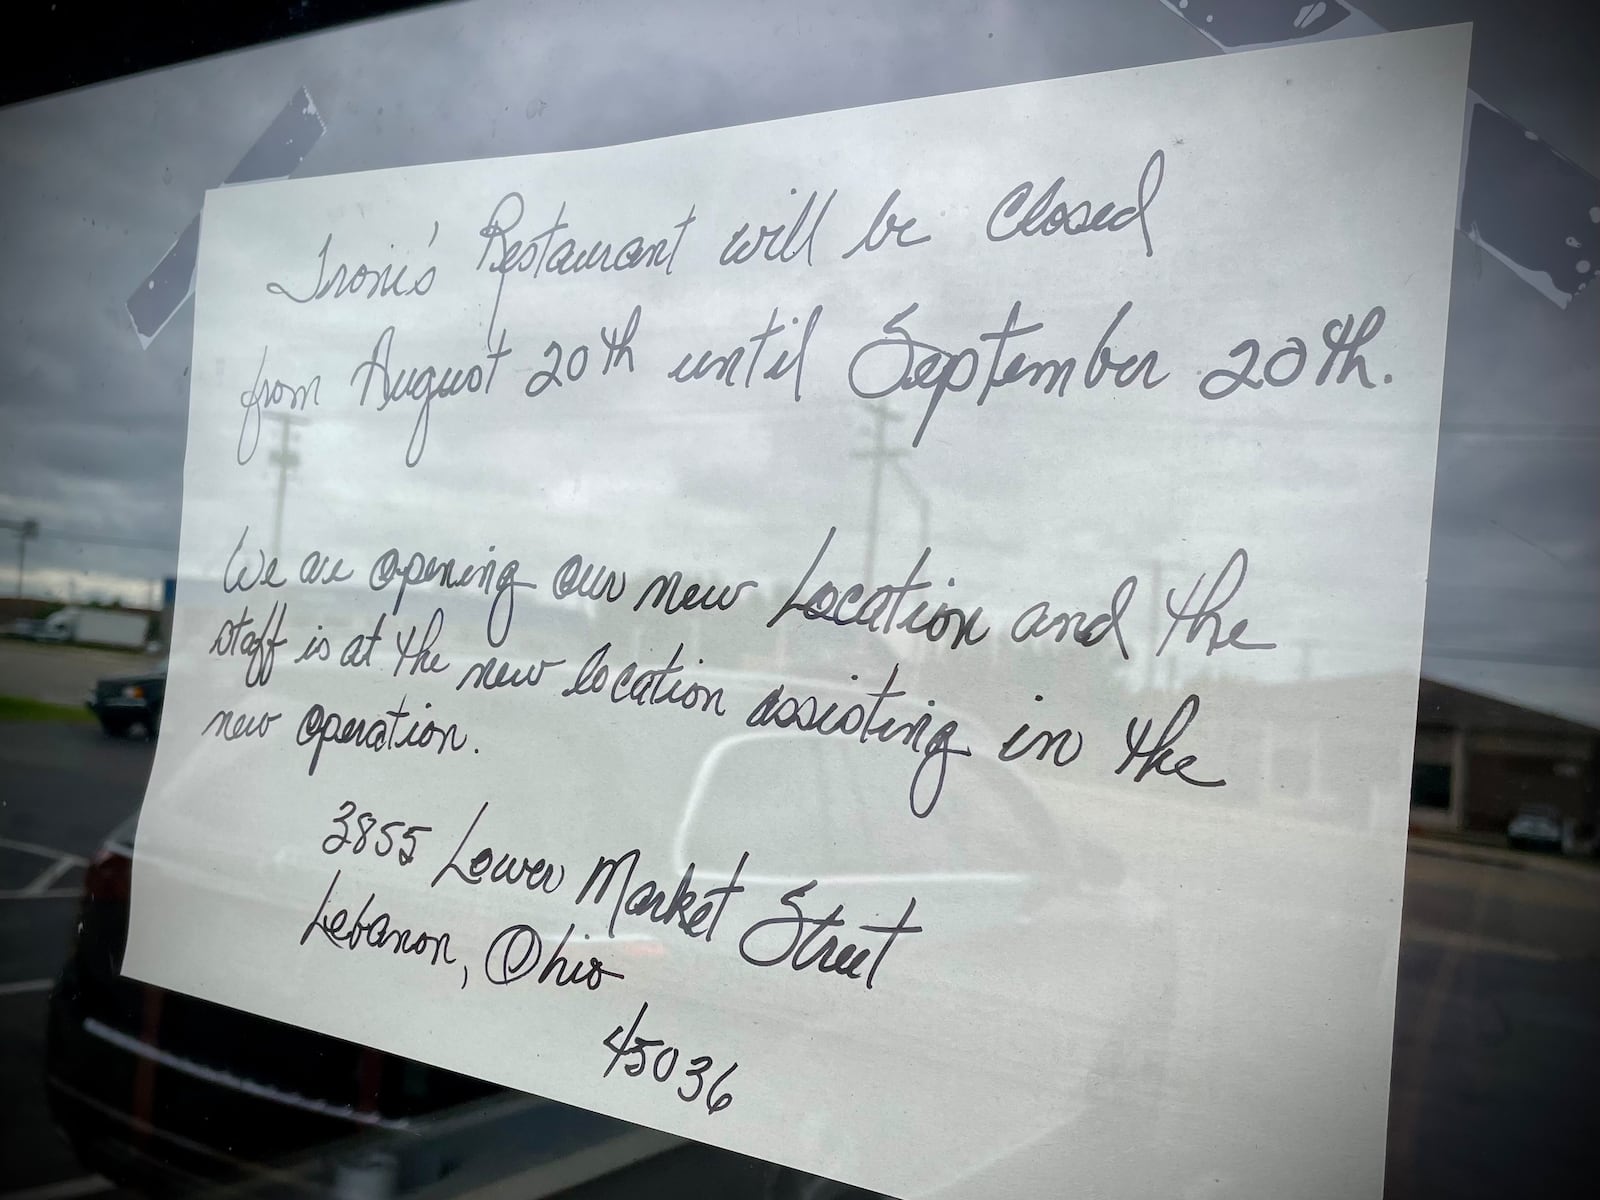 Troni's Restaurant will be Closed
from August 20th until September 20th.
We are opening our new Location and the
staff is at the new location assisting in the
new operation.
3855 Lower Market Street
Lebanon, Ohio
45036